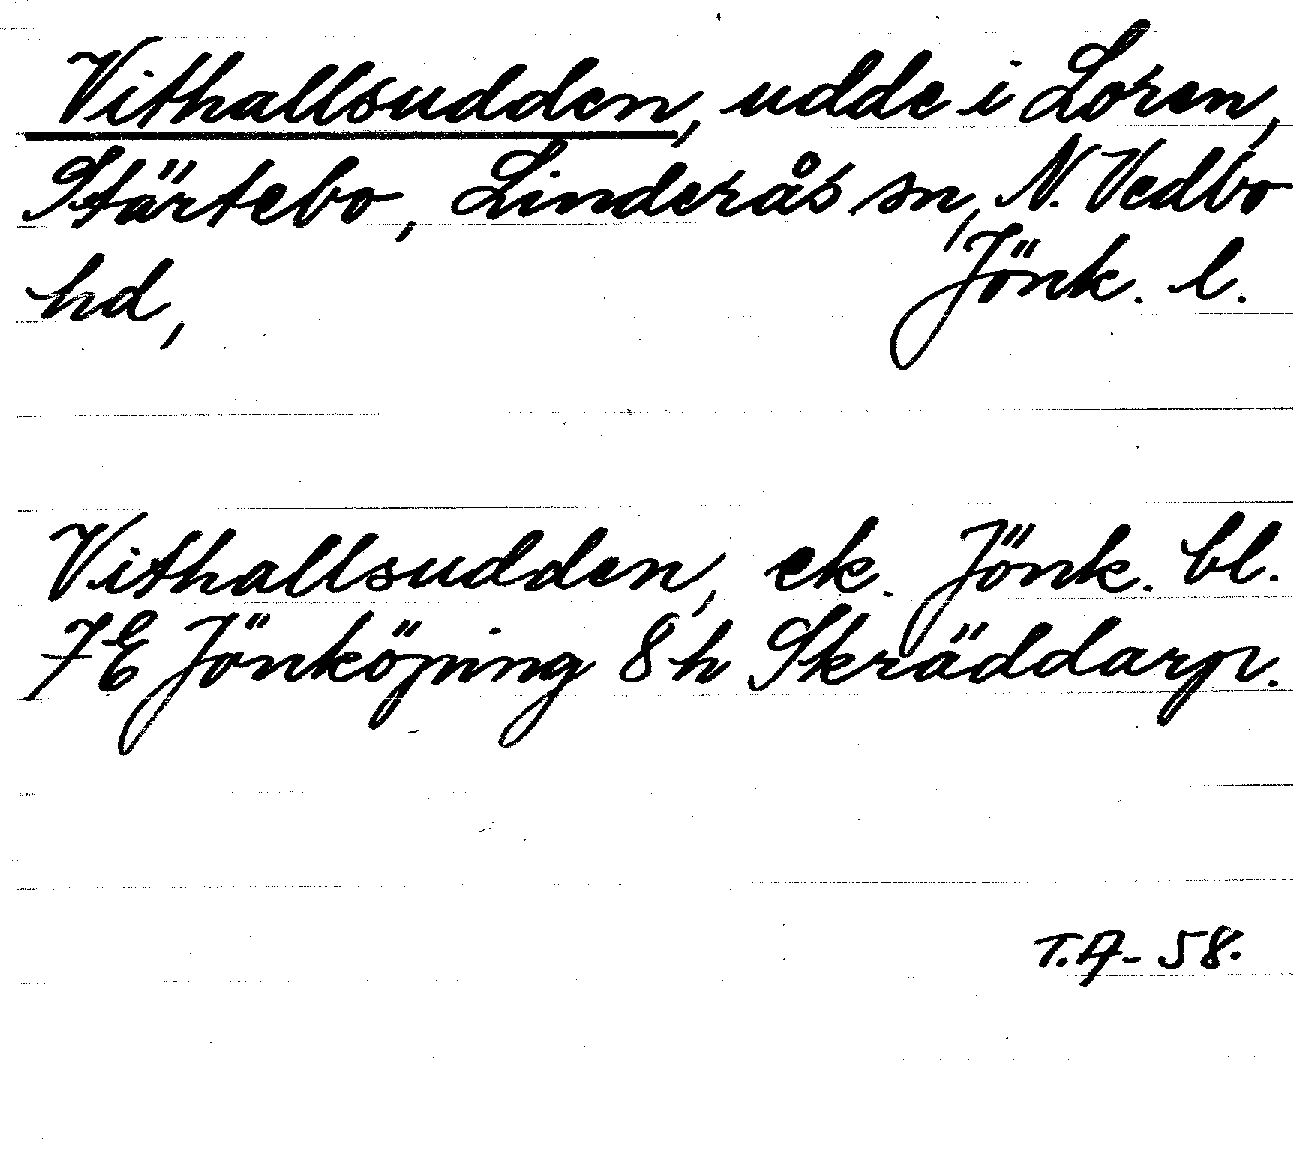 Vithallsudden, udde i Loren,
Stärtebo, Linderås sn, N. Vedbo
hd, Jönk. l.
Vithallsudden, ek. Jönk. bl.
7E Jönköping 8h Skräddarp.
T.A-58.